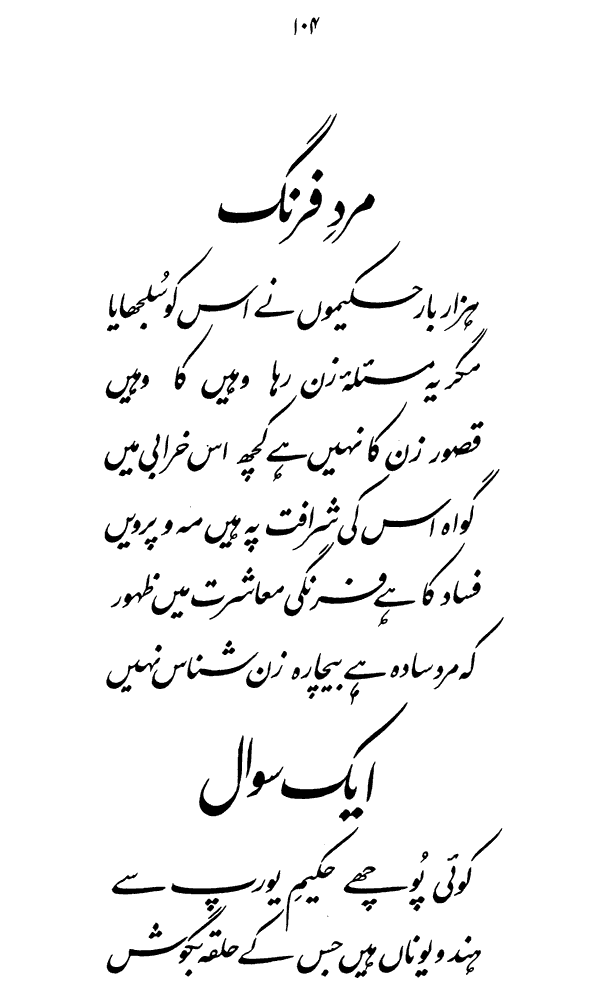 ۱۰۴
مردِ فرنگ
ہزار بار حکیموں نے اس کو سُلجھایا
مگر یہ مسئلۂ زن رہا وہیں کا وہیں
قصور زن کا نہیں ہے کچھ اس خرابی میں
گواہ اس کی شرافت پہ ہیں مہ و پرویں
فساد کا ہے فرنگی معاشرت میں ظہور
کہ مرد سادہ ہے بیچارہ زن شناس نہیں
ایک سوال
کوئی پُوچھے حکیمِ یورپ سے
ہند و یوناں ہیں جس کے حلقہ بگوش